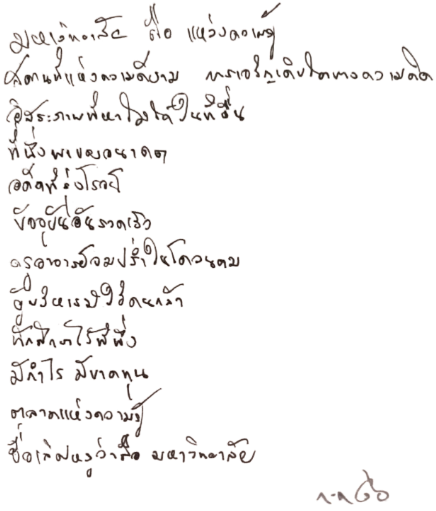 มหาวิทยาลัย คือ แหล่งความรู้
สถานที่แห่งความดีงาม การเจริญเติบโตทางความคิด
อิสระภาพที่หาไม่ได้ในที่อื่น
ที่นี่งพเขยอนาคต
อดีตที่รุ่งโรจน์
ปัจจุบันอันรวดเร็ว
ครูอาจารย์จมปลักในโคลนตม
ผู้บริหารมิใช่คนกล้า
นักศึกษาไร้ที่พึ่ง
มีกำไร มีขาดทุน
ตลาดแห่งความรู้
ชื่อเสียงหรูว่าคือ มหาวิทยาลัย